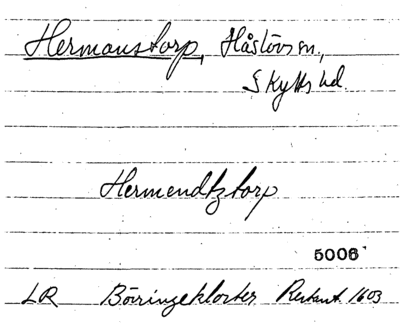 Hermanstorp, Håslövs sn.,
Skytts hd.
Hermendtztorp
5006
LR Börringekloster Restant. 1603